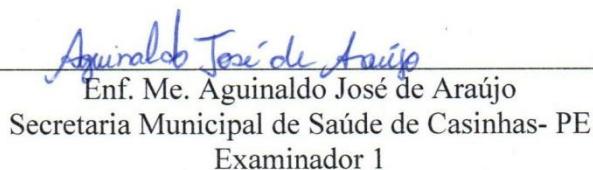 Aguinaldo José de Araújo
Enf. Me. Aguinaldo José de Araújo
Secretaria Municipal de Saúde de Casinhas- PE
Examinador 1